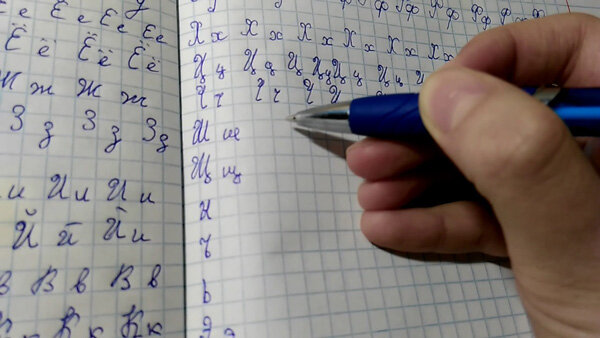 Ее Ее Ее Ее
Ёё Ёё Ёё
Ж ж Ж ж
З з З з З з
и И и И и
Й й Й и
в В в В в
К к К к
Ф ф Ф ф Ф ф
Х х Х х Х х Х х Х х Х х
Ц ц Ц ц Ц Ц ц Ц ц Ц ц Ц
Ч ч Ч ч Ч Ч
Ш ш
Щ щ
ъ
ь
Э э